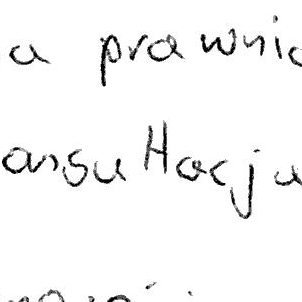 a prawnic
onsultacja